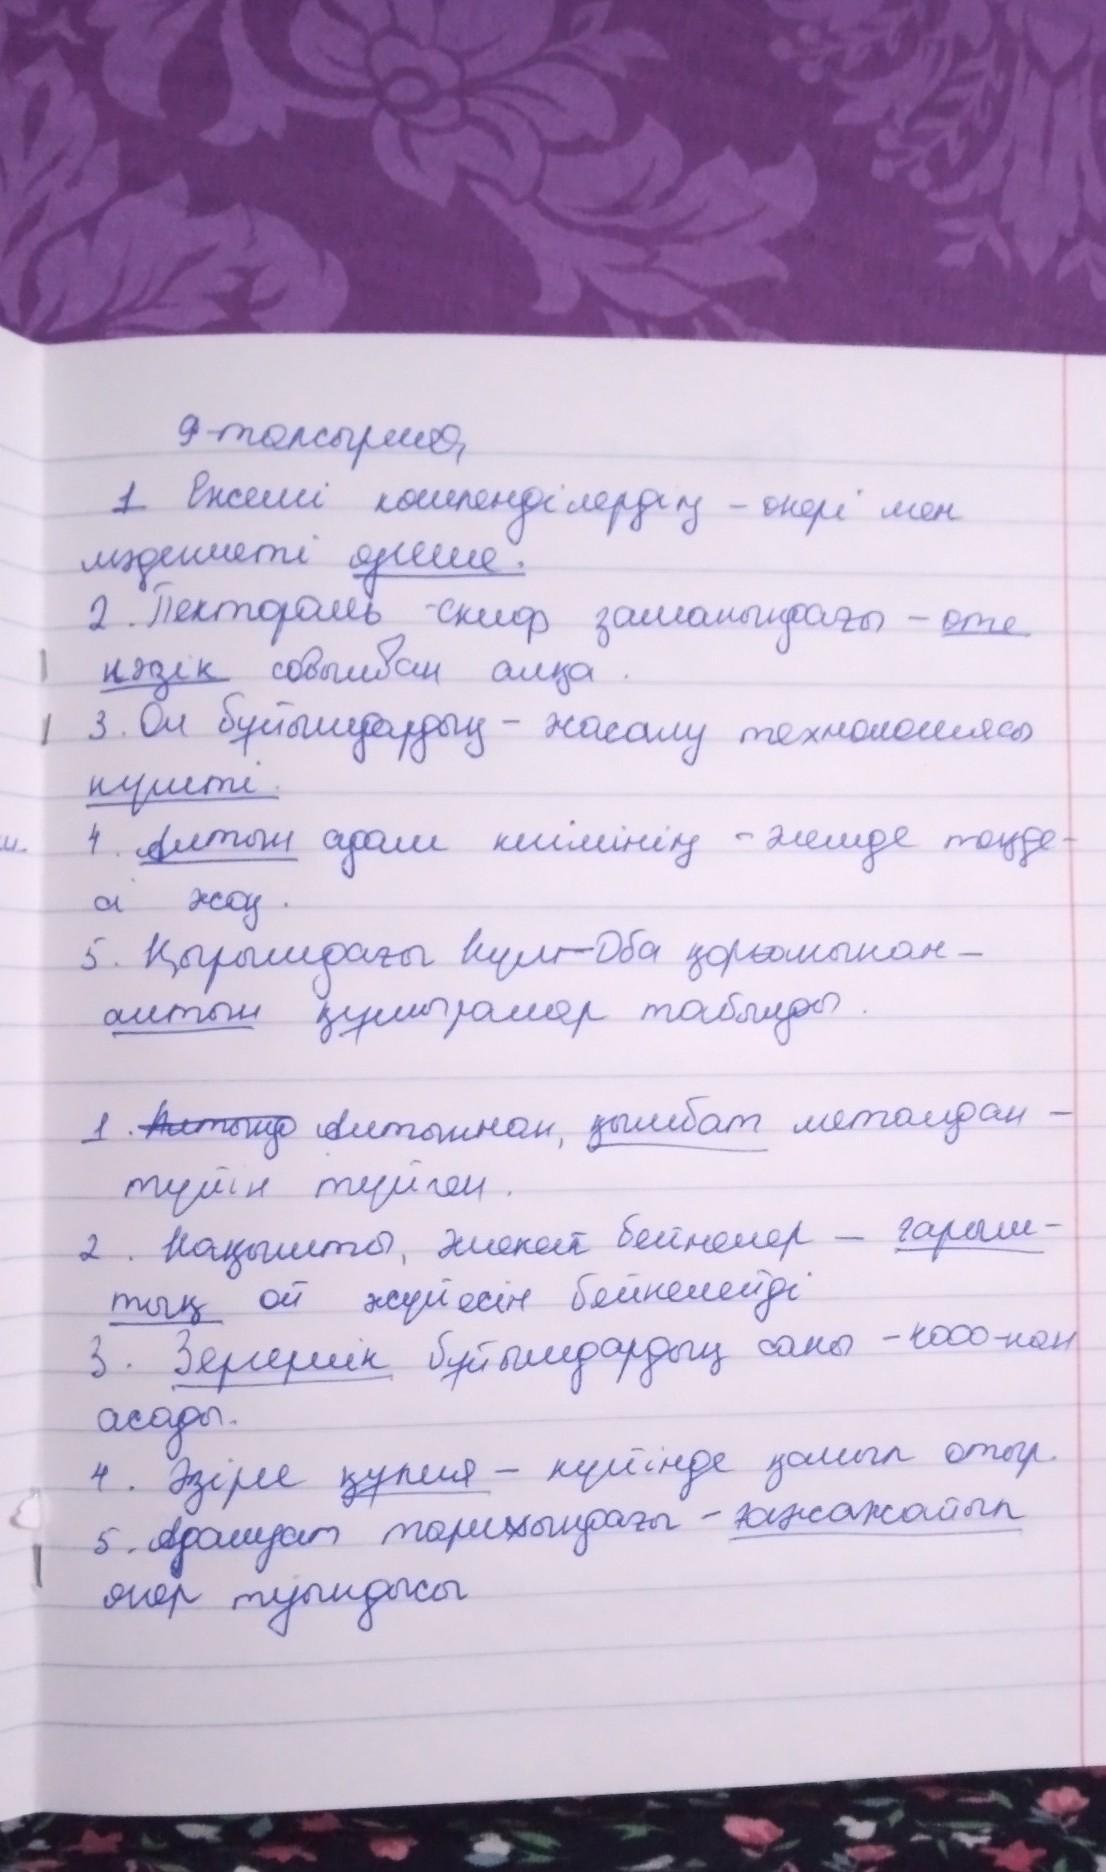 9-тапсырма
1 Ежелгі көшпенділердің - өнері мен
мәдениеті ерекше.
2. Пектораль - скиф заманындағы - өте
нәзік соғылған алқа.
3. Ол бұйымдардың - жасалу технологиясы
күшті.
4. Алтын адам киімінің - әлемде теңде-
сі жоқ.
5. Қырымдағы Күл-Оба қорғамынан -
алтын құмыралар табылды.
1. Алтыннан, қымбат металдан -
түйін түйген.
2. Нақышты, әшекей бейнелер - ғарыш-
тық ой жүйесін бейнелейді
3. Зергерлік бұйымдардың саны - 4000-нан
асады.
4. Әзірге құпия - күйінде қалып отыр.
5. Адамзат тарихындағы - ғажайып
өнер туындысы